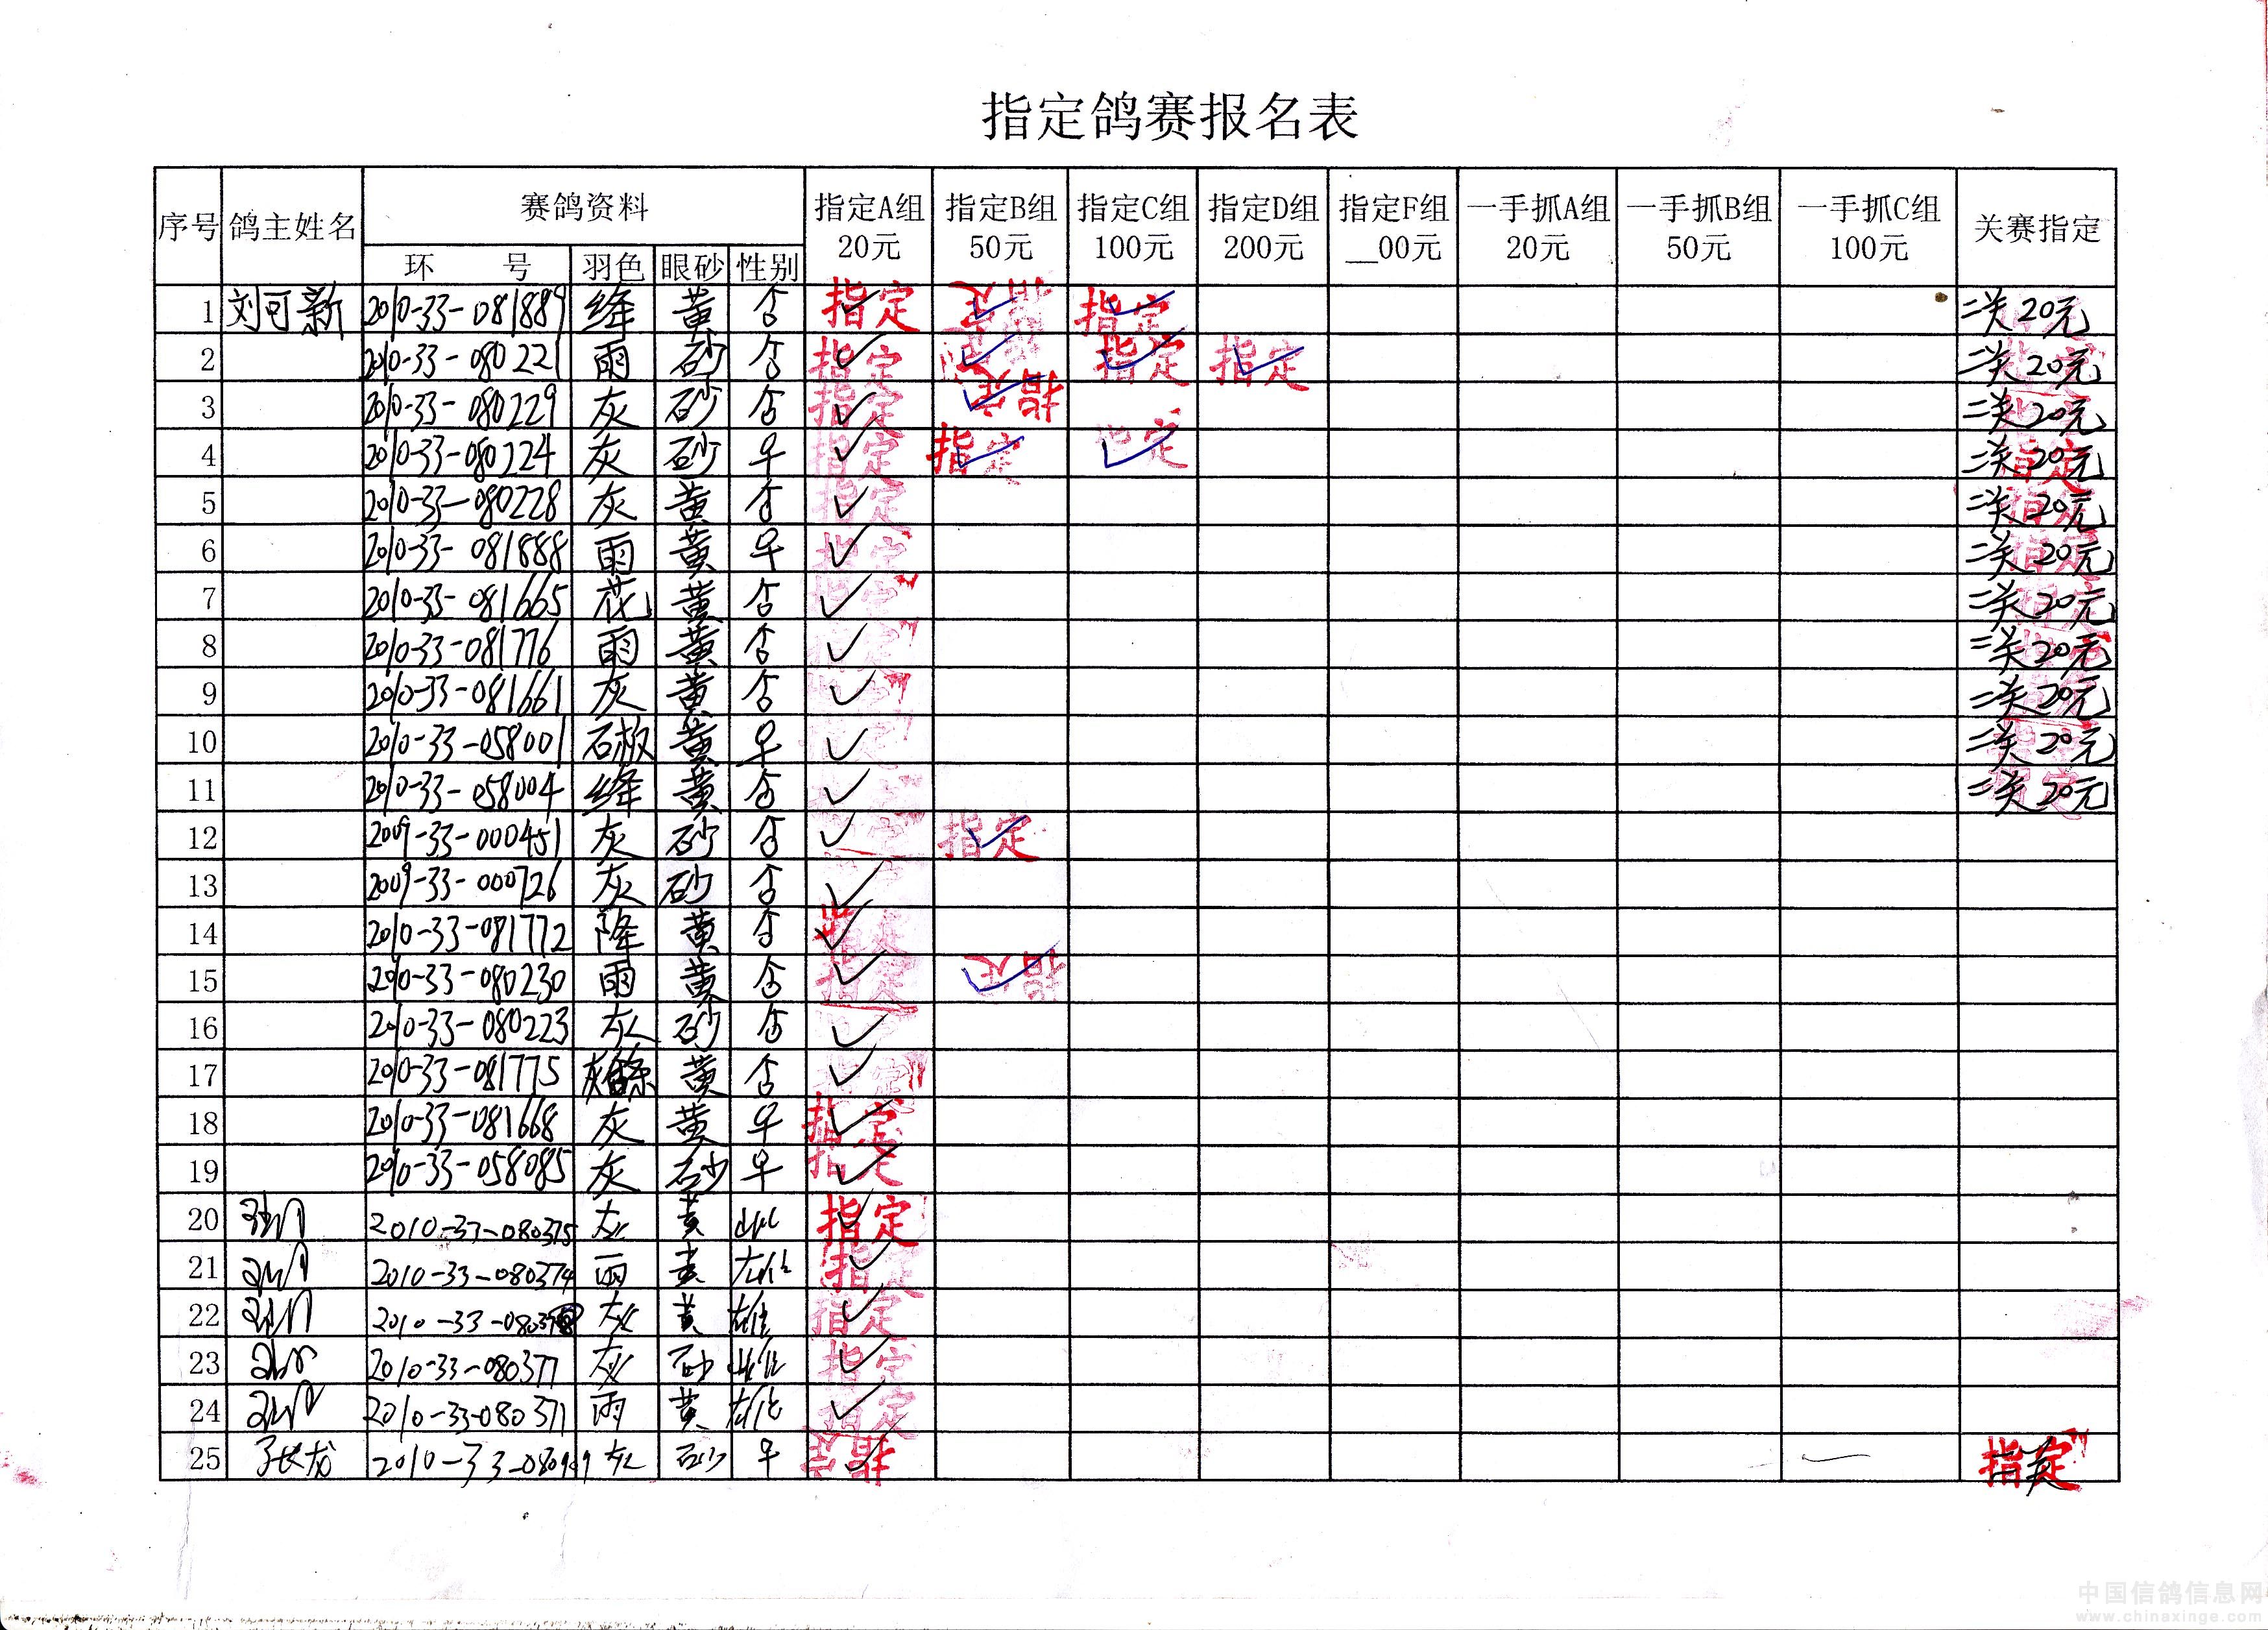 指定鸽赛报名表
序号 鸽主姓名 赛鸽资料 指定A组 指定B组 指定C组 指定D组 指定F组 一手抓A组 一手抓B组 一手抓C组 关赛指定
20元 50元 100元 200元 __00元 20元 50元 100元
环 号 羽色 眼砂 性别
1 刘可新 2010-33-081889 绛 黄 ✓ 指定 ✓ 指定 ✓ 指定 二关20元
2 2010-33-080221 雨 砂 ✓ 指定 ✓ 指定 ✓ 指定 ✓ 指定 二关20元
3 2010-33-080229 灰 砂 ✓ 指定 ✓ 指定 二关20元
4 2010-33-080224 灰 砂 ✓ 指定 ✓ 指定 ✓ 指定 二关20元 指定
5 2010-33-080228 灰 黄 ✓ 指定 二关20元 指定
6 2010-33-081888 雨 黄 ✓ 指定 二关20元 指定
7 2010-33-081665 花 黄 ✓ 二关20元 指定
8 2010-33-081776 雨 黄 ✓ 二关20元
9 2010-33-081661 灰 黄 ✓ 二关20元
10 2010-33-058001 石板 黄 ✓ 二关20元
11 2010-33-058004 绛 黄 ✓ 二关20元 指定
12 2009-33-000451 灰 砂 ✓ ✓ 指定
13 2009-33-000726 灰 砂 ✓
14 2010-33-081772 降 黄 ✓
15 2010-33-080230 雨 黄 ✓ 指定 ✓ 指定
16 2010-33-080223 灰 砂 ✓
17 2010-33-081775 黄 ✓
18 2010-33-081668 灰 黄 ✓ 指定
19 2010-33-058085 灰 砂 ✓ 指定
20 2010-33-080375 灰 黄 ✓ 指定
21 2010-33-080374 雨 黄 雄 ✓ 指定
22 灰 黄 雄 ✓ 指定
23 2010-33-080377 灰 砂 雄 ✓ 指定
24 2010-33-080371 雨 黄 雄 ✓ 指定
25 张龙 灰 砂 ✓ 指定 指定
中国信鸽信息网
www.chinaxinge.com